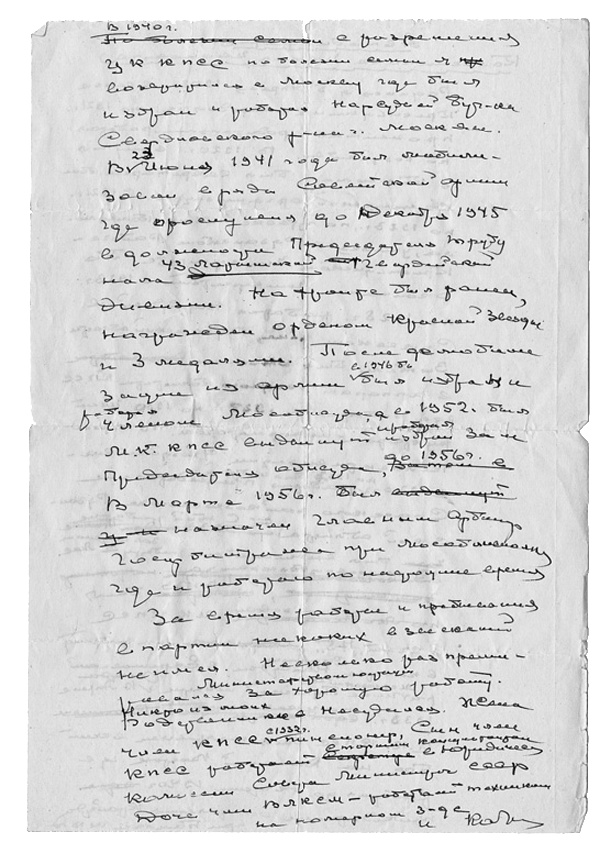 В 1940 г.
По болезни семьи с разрешения
ЦК КПСС по болезни семьи я
возвратился в Москву где был
избран и работал Народный Судьей
Свердловского р-на г. Москвы.
23
В Июня 1941 года был мобили-
зован в ряды Советской Армии
где прослужил до Декабря 1945
в должности Председателя трибу
нала 43 Латышской Гвардейской
дивизии. На фронте был ранен,
награжден орденом Красной Звезды
и 3 медалями. После демобили
с 1946 г.
зации из армии был избран и
работал
членом Мособлсуда, а с 1952 г. был
и работал
МК КПСС выдвинут избран Зам
до 1956 г.
Председателя облсуда, Затем в
В Марте 1956 г. был выдвинут
и назначен Главным Арбитр
Госарбитража при Мособлисполкоме
где и работаю по настоящее время
За время работы и пребывания
в партии никаких взысканий
не имел. Несколько раз преми-
Министерством юстиции
ровался за хорошую работу.
Никто из моих
Родственников не судился. Жена
с 1932 г.
член КПСС пенсионер, Сын член
старшим консультантом
КПСС работает в Юридической
Комиссии Совета Министров СССР
Дочь член ВЛКСМ – работает техником
на номерном з-де